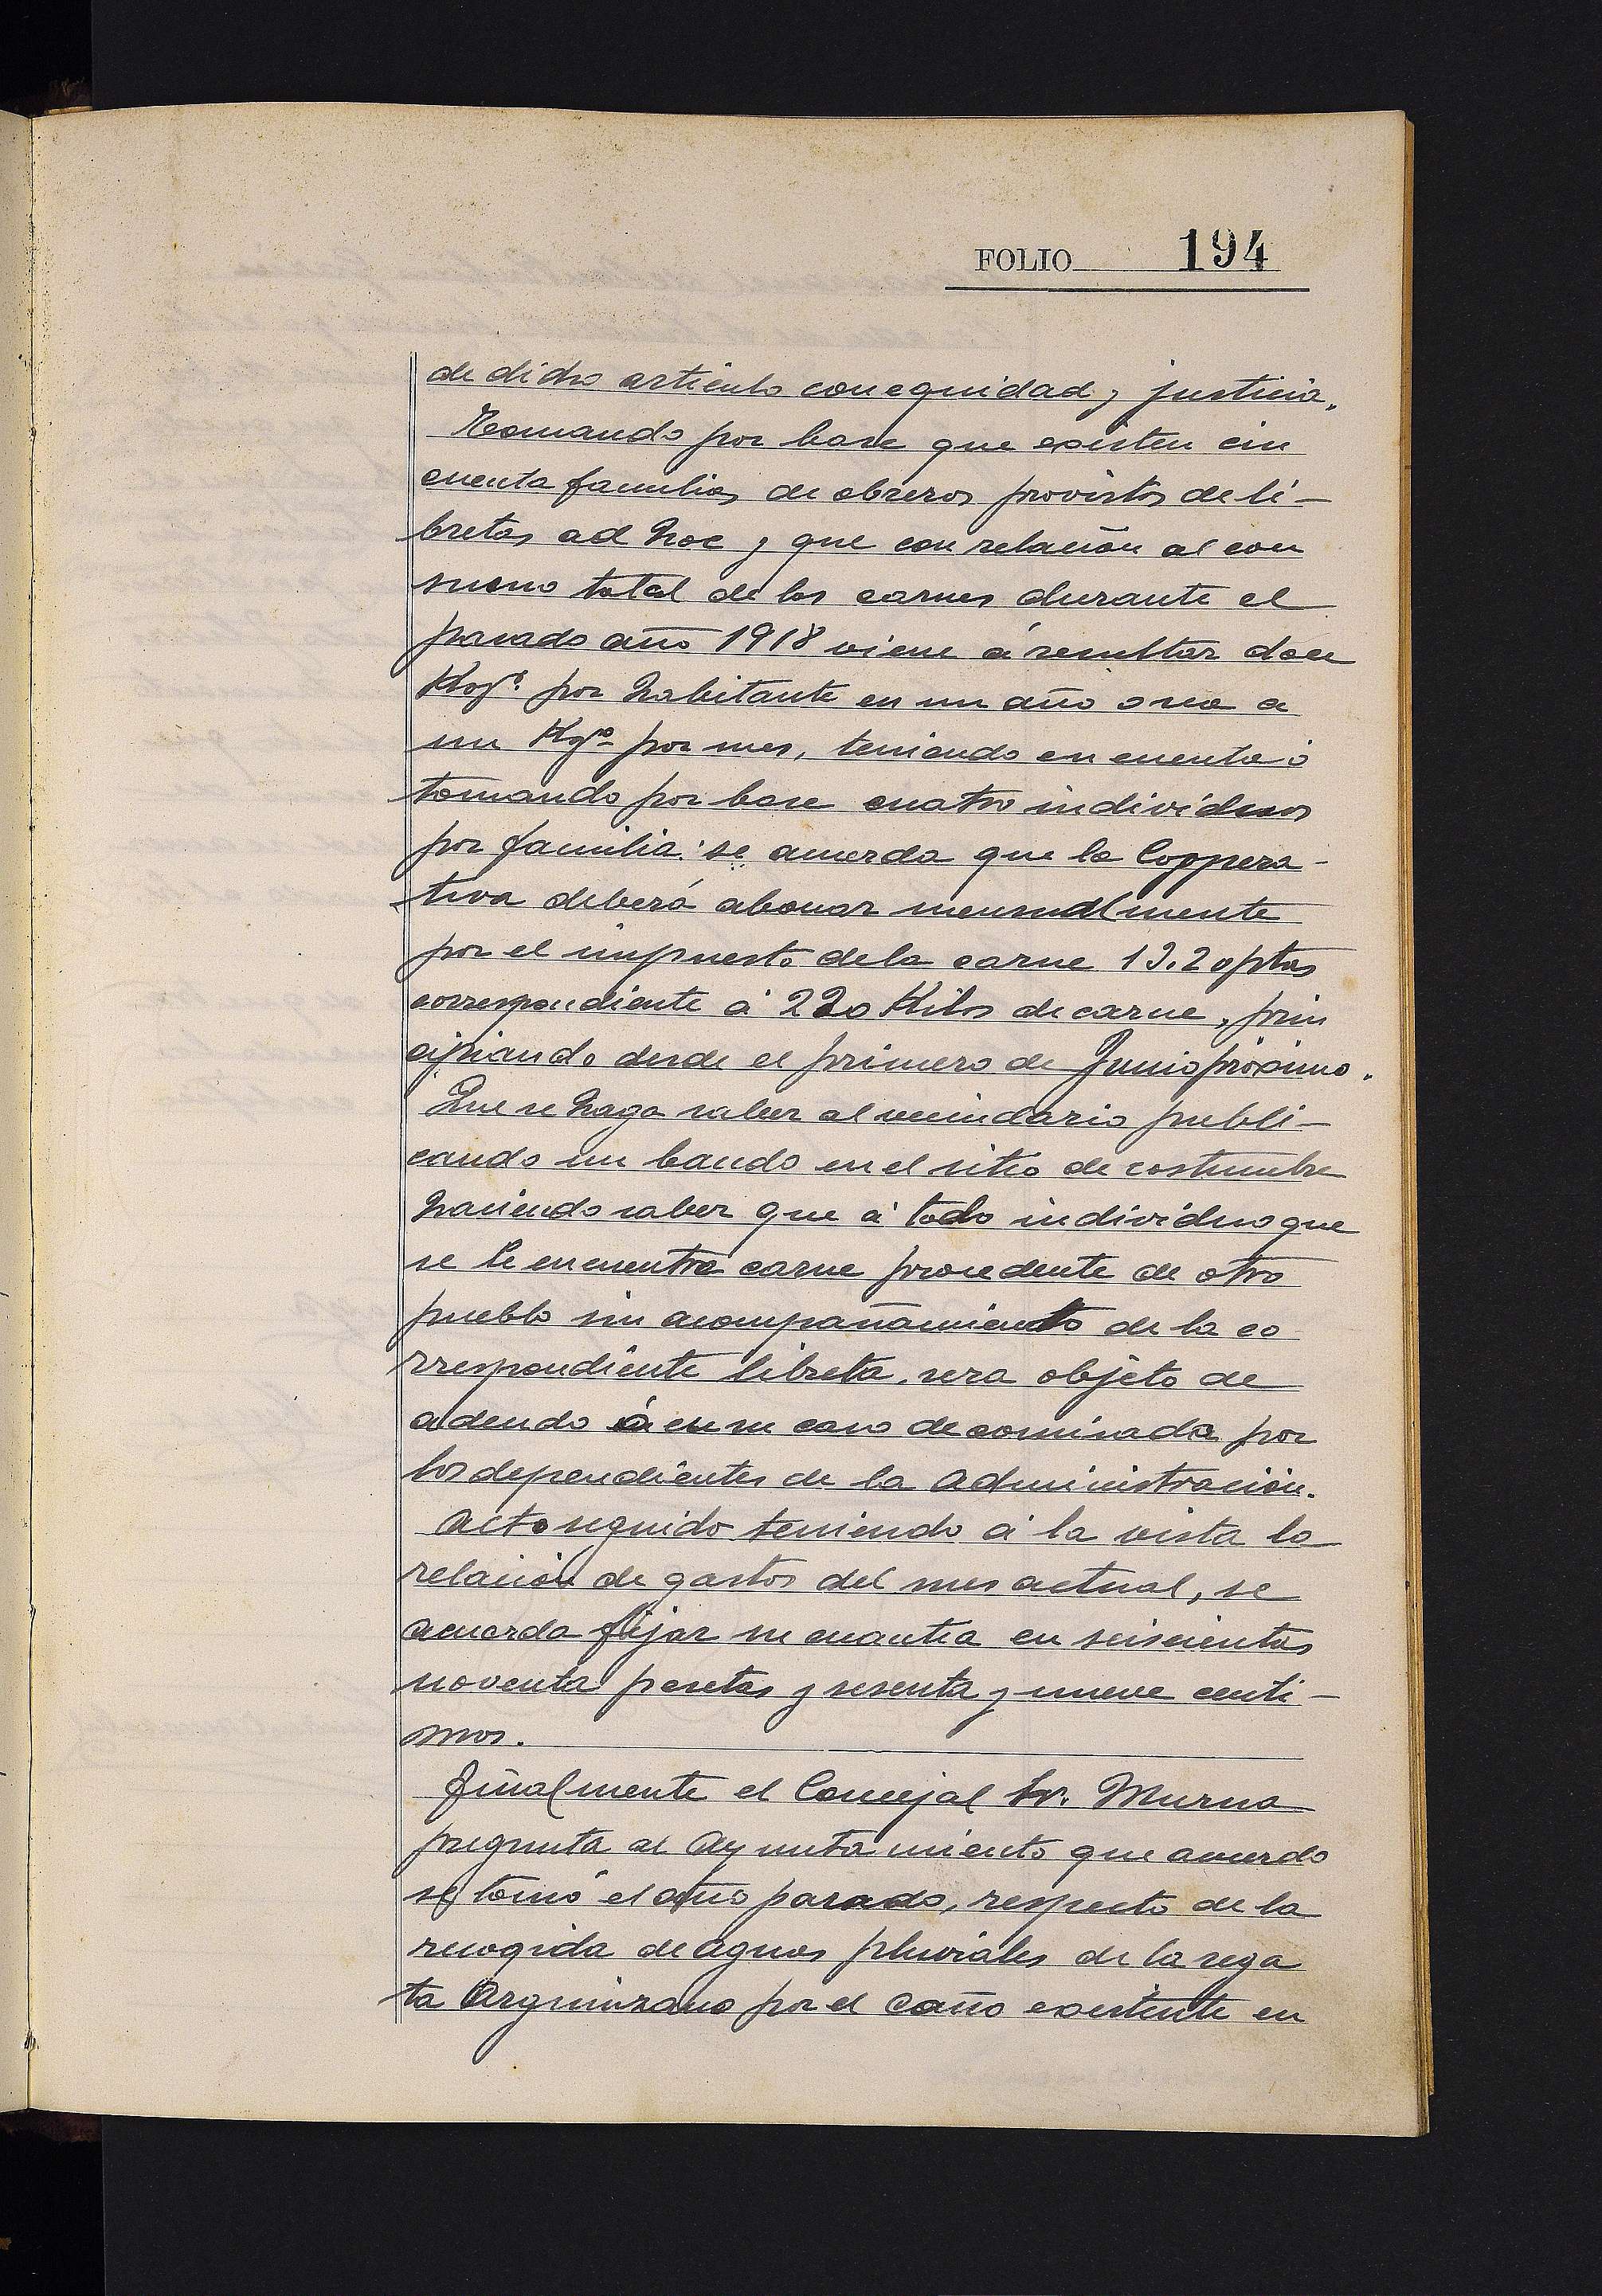 FOLIO 194
de dicho artículo con equidad y justicia.
Tomando por base que existen cin
cuenta familias de obreros provistos de li-
bretas ad hoc y que con relación al con
sumo total de las carnes durante el
pasado año 1918 viene á resultar doce
Kogs. por habitante en un año o sea a
un Kgo. por mes, teniendo en cuenta ó
tomando por base cuatro individuos
por familia: se acuerda que la Coppera-
tiva deberá abonar mensualmente
por el impuesto de la carne 13.20 ptas
correspondiente á 220 Kilos de carne, prin
cipiando desde el primero de Junio próximo.
Que se haga saber al vecindario publi-
cando un bando en el sitio de costumbre
haciendo saber que á todo individuo que
se le encuentra carne procedente de otro
pueblo sin acompañamiento de la co
rrespondiente libreta, sera objeto de
adeudo ó en su caso decomisada por
los dependientes de la Administración.
Acto seguido teniendo á la vista la
relación de gastos del mes actual, se
acuerda fijar su cuantia en seiscientas
noventa pesetas y sesenta y nueve centi-
mos.
Finalmente el Concejal Sr. Murua
pregunta al Ayuntamiento que acuerdo
se tomó el año pasado, respecto de la
recogida de aguas pluviales de la rega
ta Arguinzano por el Caño existente en